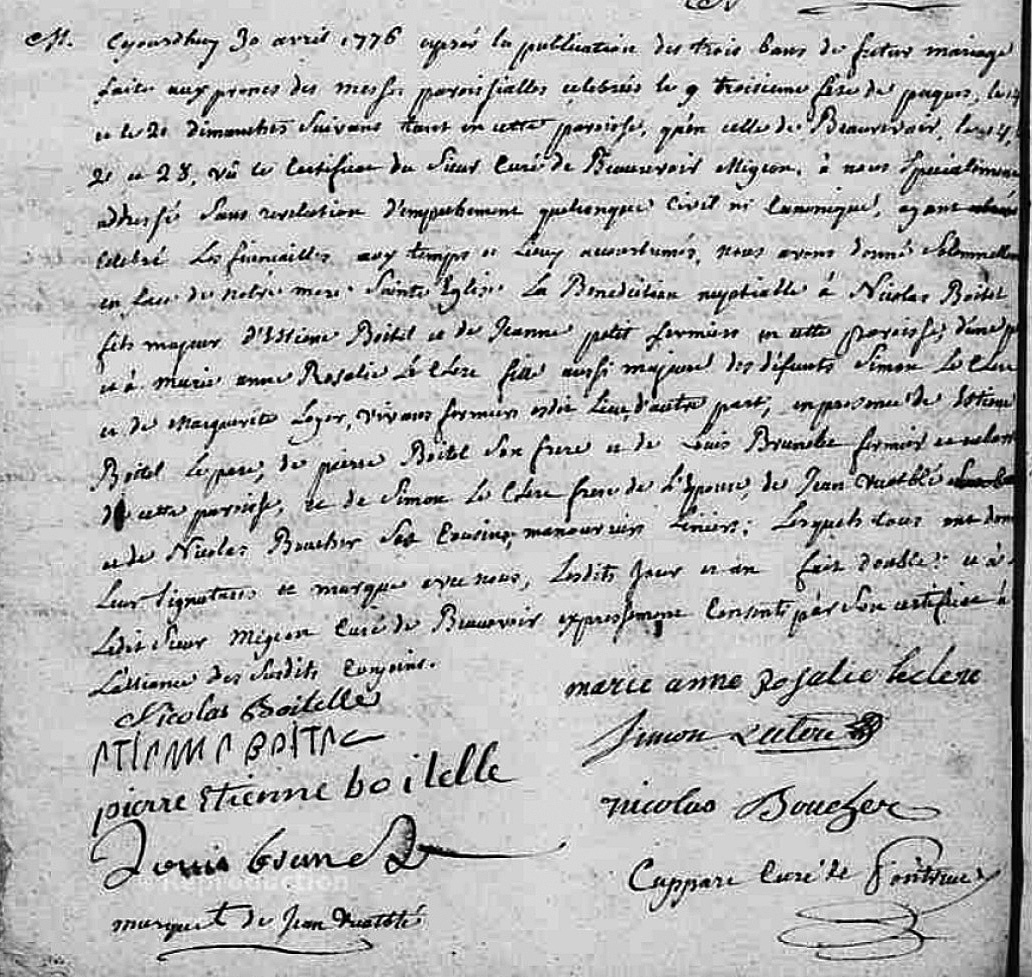 M. Cejourdhuy 30 avril 1776 apres la publication des trois bans de futur mariage
faite aux prones des messes paroissialles celebrées le 9 troisieme fete de paques, le 14
et le 21 dimanches suivans tant en cette paroisse, qu'en celle de Beaurevoir, les 14,
21 et 28, vû le Certificat du Sieur Curé de Beaurevoir Migeon, à nous specialement
adressé sans revelation d'empechement quelconque Civil ni Canonique, ayant
celebré Les fiancailles aux temps et Lieux accoutumés, nous avons donné solennellem
en face de notre mere Sainte Eglise La Benediction nuptialle à Nicolas Boitel
fils majeur d'Estiene Boitel et de Jeanne petit fermiers en cette paroisse, d'une p
et à marie anne Rosalie Le Clere fille aussi majeure des défunts Simon Le Clere
et de Marguerite Loyer, vivans fermiers audit Lieu, d'autre part, en presence de Estiene
Boitel Le pere, de pierre Boitel son frere et de Louis Brunelle fermier et
de cette paroisse, et de Simon Le Clere frere de L'Epouse, de Jean Vuatblé
et de Nicolas Boucher ses Cousins, manouvriers Liniers; Lesquels tous ont don
Leur signatures et marque avec nous, Lesdits Jour et an fait double: et à
Ledit Sieur Migeon Curé de Beaurevoir expressement Consenti par son certificat à
L'alliance des susdits Conjoins.
Nicolas Boitelle
marie anne Rosalie leclere
ATIANNABOITAL
Simon Leclere
pierre Etienne boitelle
nicolas Boucher
Louis brunel
Cappare Curé de
Reproduction
marque t de Jean Vuatblé